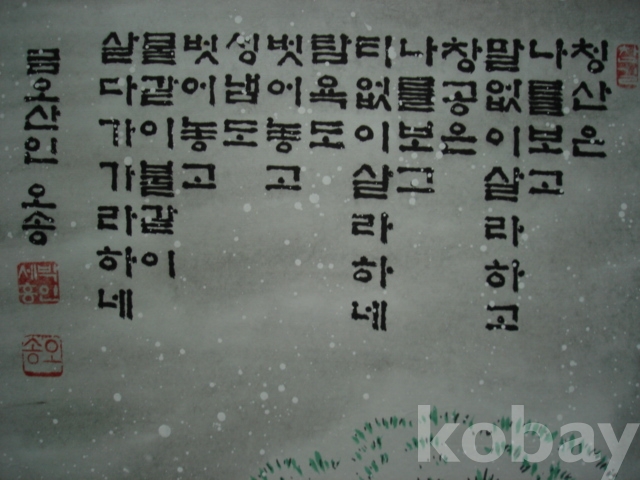 청산은
나를보고
말없이살라하고
창공은
나를보고
티없이살라하네
탐욕도
벗어놓고
성냄도
벗어놓고
물같이바람같이
살다가가라하네
오송
박인
세용
오송
kobay